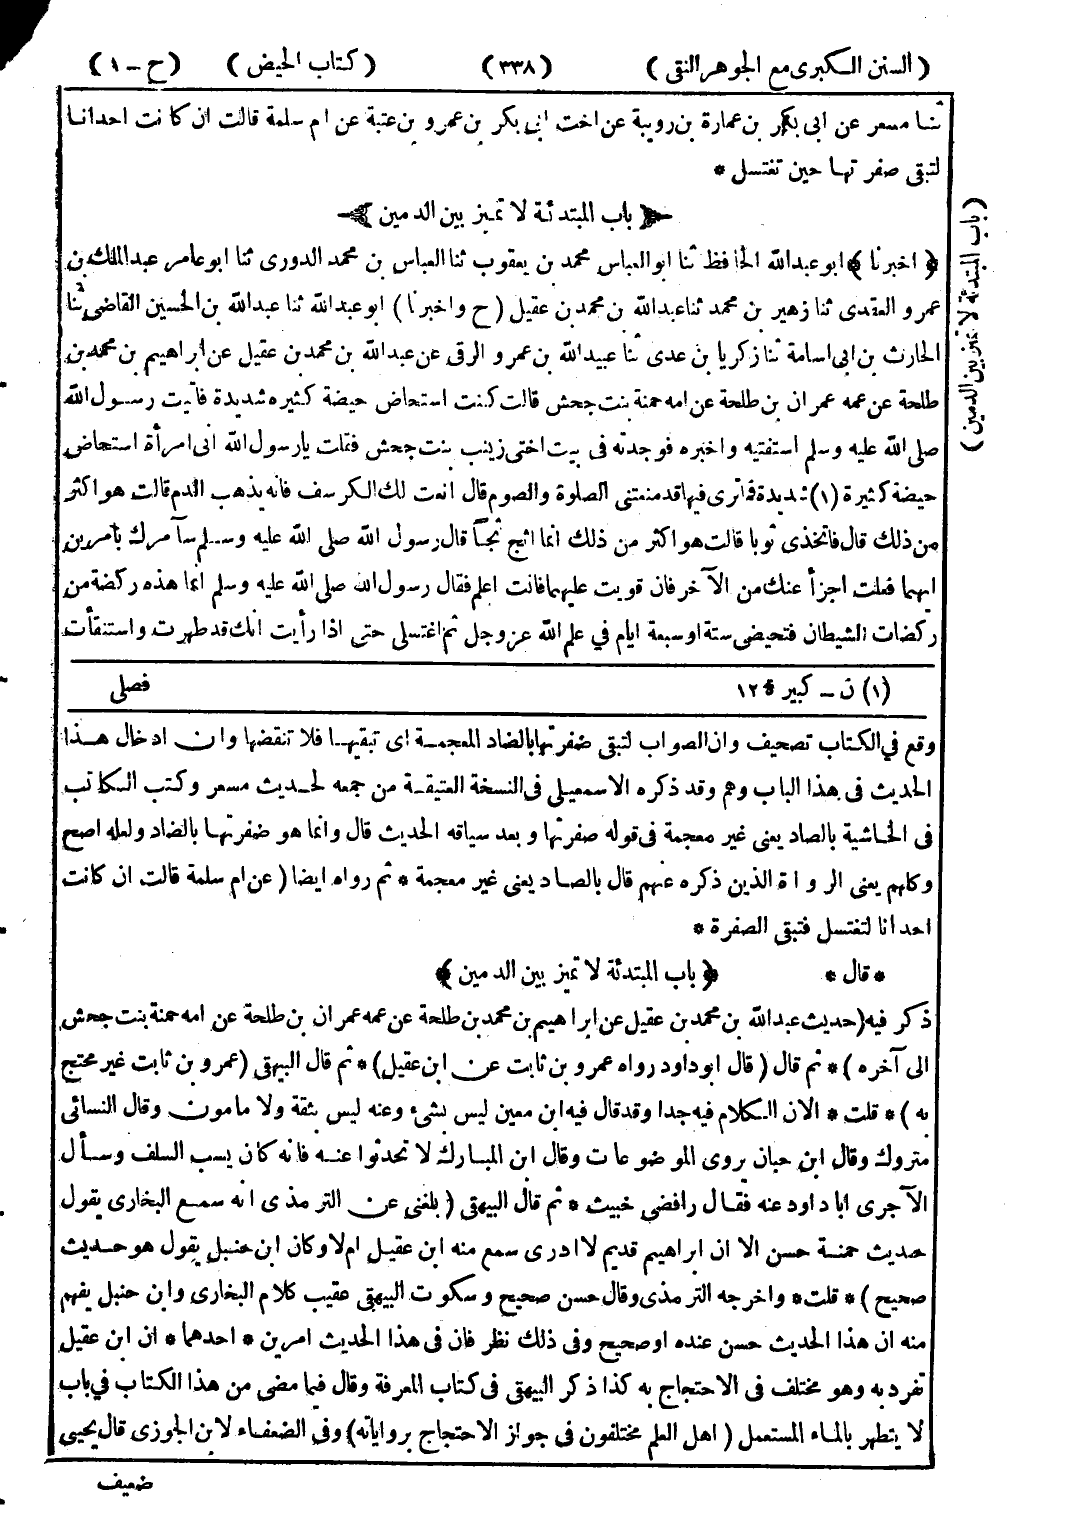 ( السنن الكبرى مع الجوهر النقى ) ( ٣٣٨ ) ( كتاب الحيض ) ( ج - ١ )
ثنا مسعر عن ابى بكر بن عمارة بن رويبة عن اخت ابى بكر بن عمرو بن عتبة عن ام سلمة قالت ان كانت احدانا
لتبقى صفرتها حين تغتسل *
﴿ باب المبتدئة لا تميز بين الدمين ﴾
( باب المبتدئة لا تميز بين الدمين )
﴿ اخبرنا ﴾ ابو عبدالله الحافظ ثنا ابو العباس محمد بن يعقوب ثنا العباس بن محمد الدورى ثنا ابو عامر عبدالملك بن
عمرو العقدى ثنا زهير بن محمد ثنا عبدالله بن محمد بن عقيل ( ح واخبرنا ) ابو عبدالله ثنا عبدالله بن الحسين القاضى ثنا
الحارث بن ابى اسامة ثنا زكريا بن عدى ثنا عبيدالله بن عمرو الرقى عن عبدالله بن محمد بن عقيل عن ابراهيم بن محمد بن
طلحة عن عمه عمران بن طلحة عن امه حمنة بنت جحش قالت كنت استحاض حيضة كثيرة شديدة فاتيت رسول الله
صلى الله عليه وسلم استفتيه واخبره فوجدته فى بيت اختى زينب بنت جحش فقلت يارسول الله انى امرأة استحاض
حيضة كثيرة (١) شديدة فاترى فيها قد منعتنى الصلوة والصوم قال انعت لك الكرسف فانه يذهب الدم قالت هو اكثر
من ذلك قال فاتخذى ثوبا قالت هو اكثر من ذلك انما اثج ثجا قال رسول الله صلى الله عليه وسلم سآمرك بامرين
ايهما فعلت اجزأ عنك من الآخر فان قويت عليهما فانت اعلم فقال رسول الله صلى الله عليه وسلم انما هذه ركضة من
ركضات الشيطان فتحيضى ستة اوسبعة ايام في علم الله عزوجل ثم اغتسلى حتى اذا رأيت انك قد طهرت واستنقأت
(١) ن - كبير ١٢ فصلى
وقع في الكتاب تصحيف وان الصواب لتبقى ضفرتها بالضاد المعجمة اى تبقيها فلا تنقضها وان ادخال هذا
الحديث فى هذا الباب وهم وقد ذكره الاسمعيلى فى النسخة العتيقة من جمعه لحديث مسعر وكتب الكاتب
فى الحاشية بالصاد يعنى غير معجمة فى قوله صفرتها وبعد سياقه الحديث قال وانما هو ضفرتها بالضاد ولعله اصح
وكلهم يعنى الرواة الذين ذكره عنهم قال بالصاد يعنى غير معجمة * ثم رواه ايضا ( عن ام سلمة قالت ان كانت
احدانا لتغتسل فتبقى الصفرة *
* قال * ﴿ باب المبتدئة لا تميز بين الدمين ﴾
ذكر فيه ( حديث عبدالله بن محمد بن عقيل عن ابراهيم بن محمد بن طلحة عن عمه عمران بن طلحة عن امه حمنة بنت جحش
الى آخره ) * ثم قال ( قال ابوداود رواه عمرو بن ثابت عن ابن عقيل ) * ثم قال البيهقى ( عمرو بن ثابت غير محتج
به ) * قلت * الان الكلام فيه جدا وقد قال فيه ابن معين ليس بشىء وعنه ليس بثقة ولا مامون وقال النسائى
متروك وقال ابن حبان يروى الموضوعات وقال ابن المبارك لا تحدثوا عنه فانه كان يسب السلف وسأل
الآجرى ابا داود عنه فقال رافضى خبيث * ثم قال البيهقى ( بلغنى عن الترمذى انه سمع البخارى يقول
حديث حمنة حسن الا ان ابراهيم قديم لا ادرى سمع منه ابن عقيل ام لا وكان ابن حنبل يقول هو حديث
صحيح ) * قلت * واخرجه الترمذى وقال حسن صحيح وسكوت البيهقى عقيب كلام البخارى وابن حنبل يفهم
منه ان هذا الحديث حسن عنده اوصحيح وفى ذلك نظر فان فى هذا الحديث امرين * احدهما * ان ابن عقيل
تفرد به وهو مختلف فى الاحتجاج به كذا ذكر البيهقى فى كتاب المعرفة وقال فيما مضى من هذا الكتاب في باب
لا يتطهر بالماء المستعمل ( اهل العلم مختلفون فى جواز الاحتجاج برواياته ) وفى الضعفاء لابن الجوزى قال يحيى
ضعيف